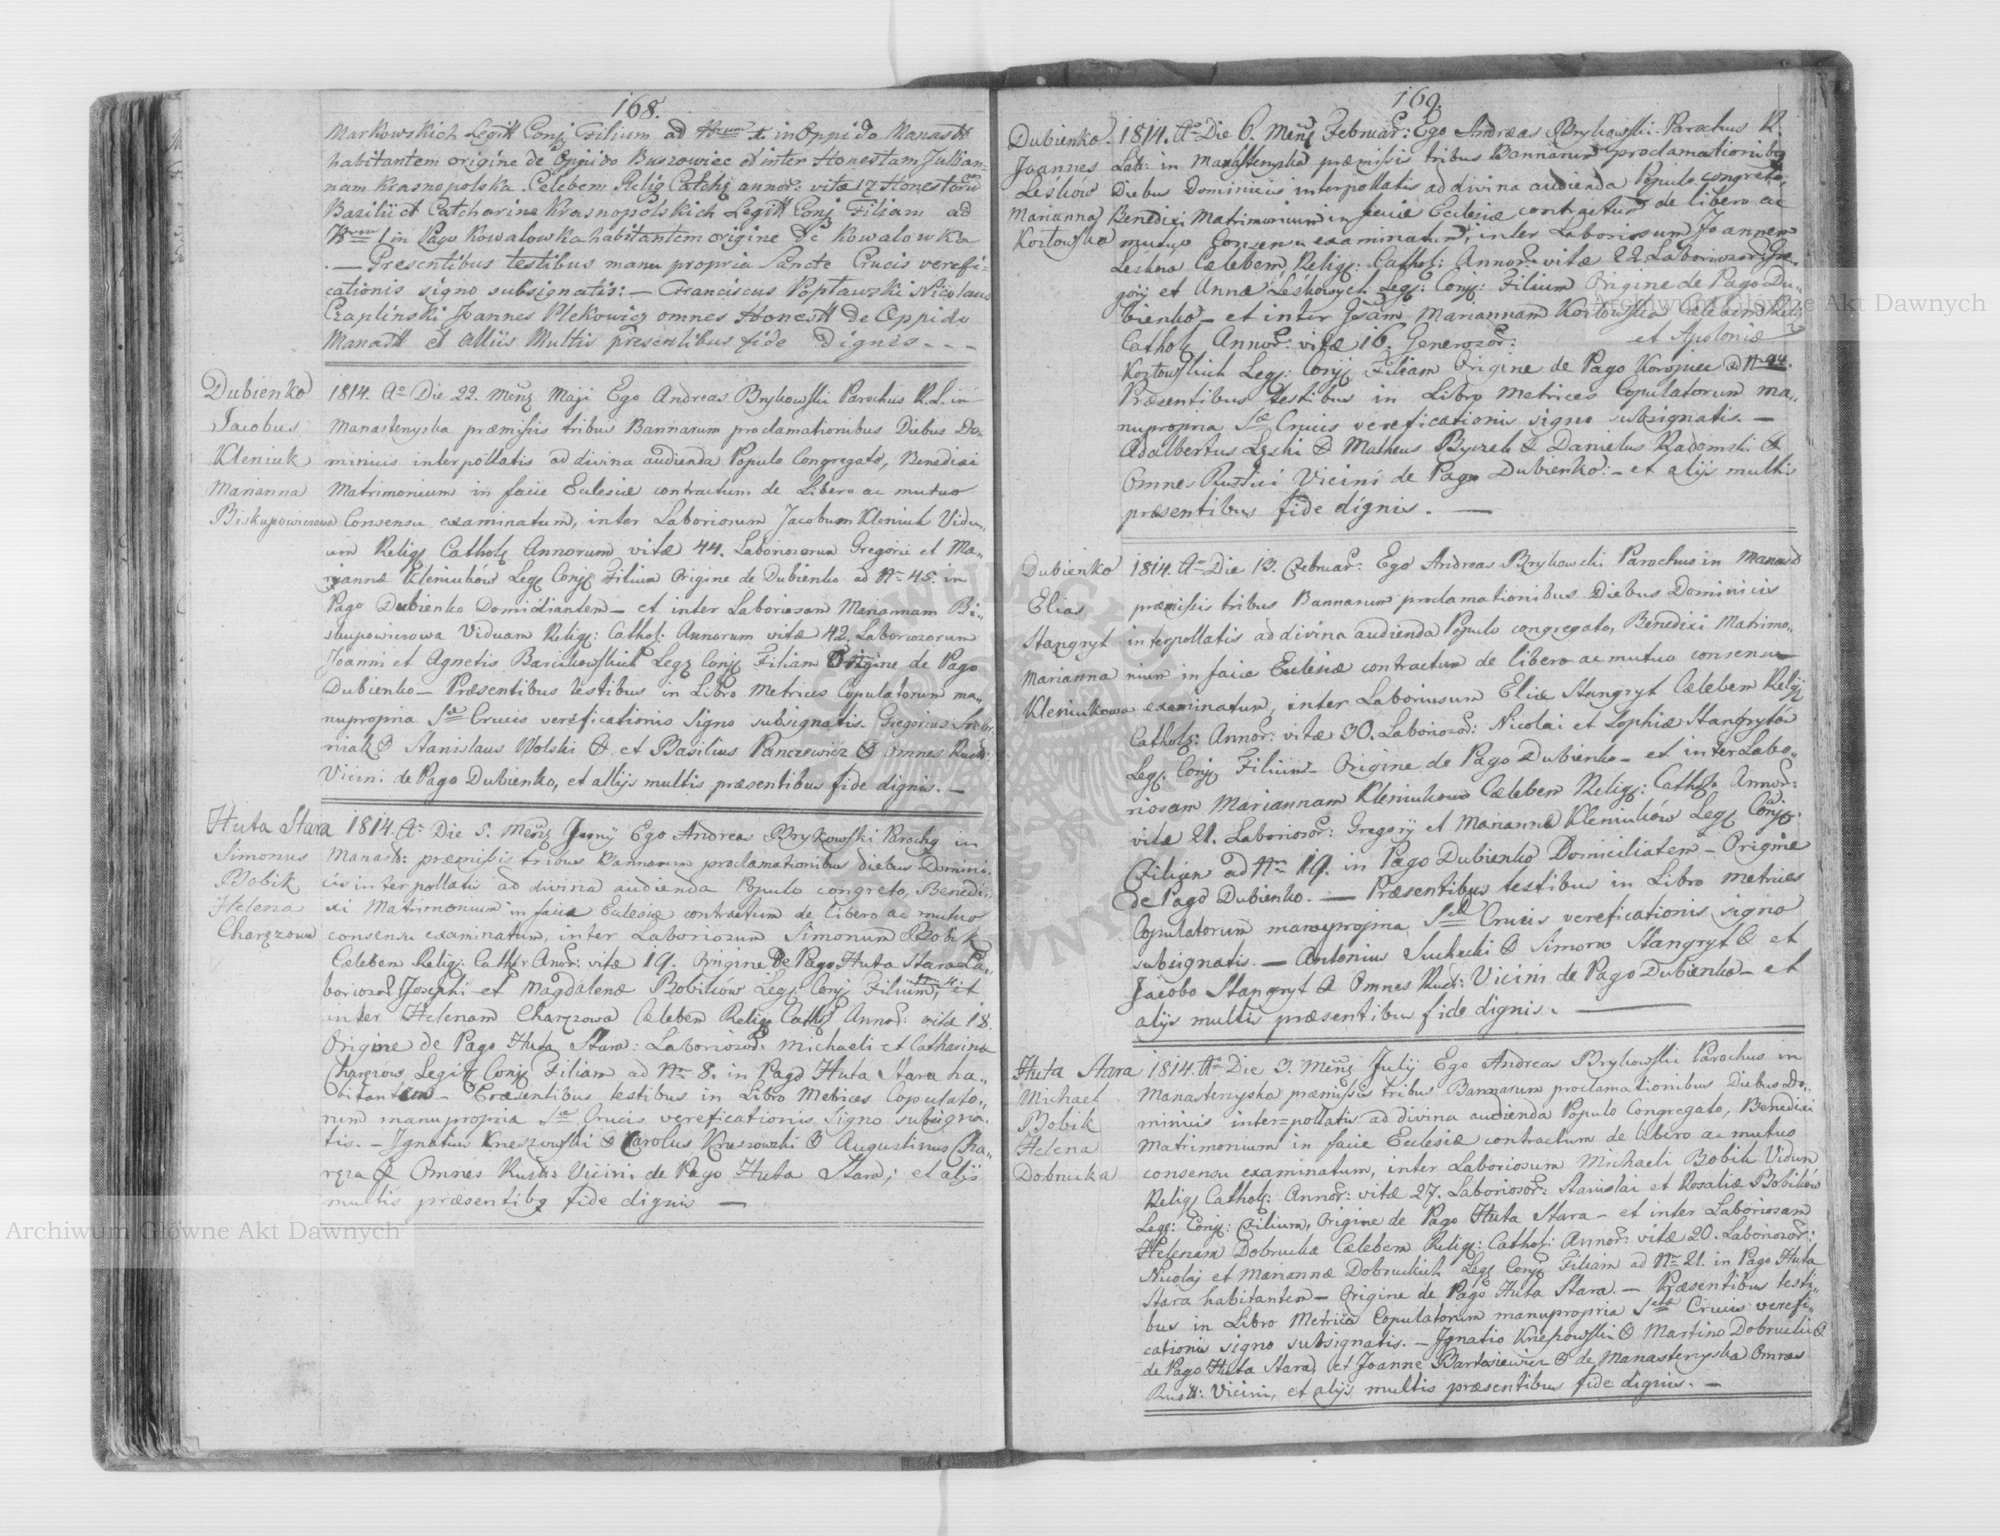 168.
Markowskich Legitt Conj Filium ad Nrum 1. in Oppido Manastt
habitantem origine de Oppido Buszowiec et inter Honestam Jullian-
nam Krasnopolska Celebem Relig Cathg annor: vitæ 17 Honestorum
Basilii et Catcharinæ Krasnopolskich Legitt Conj Filiam ad
Nrum 1 in Pago Kowalowka habitantem origine de Kowalowka
— Presentibus testibus manu propria Sancte Crucis verefi-
cationis signo subsignatis: — Franciscus Popławski Nicolaus
Czaplinski Joannes Plekowicz omnes Honestt de Oppido
Manastt et alliis Multis presentibus fide Dignes - - -
Dubienko
Jacobus
Kleniuk
Marianna
Biskupowiczowa
1814. Ao Die 22. Menz Maji Ego Andreas Brykowski Parochus R. L. in
Manasterzyska præmissis tribus Bannarum proclamationibus Diebus Do-
minicis interpollatis ad divina audienda Populo Congregato, Benedixi
Matrimonium in facie Eclesiæ contractum de Libero ac mutuo
Consensu examinatum, inter Laboriosum Jacobum Kleniuk Vidu-
um Relig Catholz Annorum vitæ 44. Laboriosorum Gregorii et Ma-
ryannæ Kleniuków Leg Conj Filium Origine de Dubienko ad Nr 45. in
Pago Dubienko Domiciliantem — et inter Laboriosam Mariannam Bi-
skupowiczowa Viduam Relig: Cathol: Annorum vitæ 42. Laboriosorum
Joanni et Agnetis Leg Conj Filiam Origine de Pago
Dubienko — Præsentibus testibus in Libro Metrices Copulatorum ma-
nupropria Stæ Crucis verificationis signo subsignatis. Gregorius
Stanislaus Wolski et Basilius Panczewicz Omnes Rustt:
Vicini de Pago Dubienko, et allijs multis præsentibus fide dignis. —
Huta Stara
Simonus
Bobik
Helena
Charęzowa
1814. Ao Die 5. Menz Junij Ego Andrea Brykowski Parochz in
Manastt: præmissis tribus Bannarum proclamationibus diebus Domini-
cis interpollatis ad divina audienda Populo congreto, Benedi-
xi Matrimonium in facia Eclesiæ contractum de libero ac mutuo
consensu examinatum, inter Laboriosum Simonum Bobik
Cælebem Relig: Cathz Anor: vitæ 19. Origine de Pago Huta Stara La-
boriosor Josephi et Magdalenæ Bobikow Leg: Conj Filium, et
inter Helenam Charęzowa Cælebem Relig Cathz Annor: vitæ 18.
Origine de Pago Huta Stara: Laboriosor: Michaeli et Catharina
Charęzow Legitt Conj Filiam ad Nr 8. in Pago Huta Stara ha-
bitantem — Præsentibus testibus in Libro Metrices Copulato-
rum manupropria Stæ Crucis vereficationis Signo subsigna-
tis. — Ignatius Carolus Augustinus Cha-
ręza Omnes Rustt: Vicini de Pago Huta Stara; et alijs
multis præsentibz fide dignis —
169.
Dubienko.
Joannes
Leśków
Marianna
Kozłowska
1814. Ao Die 6. Menz Februar: Ego Andreas Brykowski Parochus R.
Lat: in Manasterzyska præmissis tribus Bannarum proclamationibz
Diebus Dominicis interpollatis ad divina audienda Populo congreto,
Benedixi Matrimonium in facie Eclesiæ contractum de libero ac
mutuo Consensu examinatum, inter Laboriosum Joannem
Leśków Cælebem, Relig: Cathol: Annor: vitæ 22. Laboriosor: Gre-
gorij et Annæ Leśkowych Leg: Conj: Filium Origine de Pago Du-
bienko — et inter Gsam Mariannam Kozłowska Cælebem Relig
Catholz Annor: vitæ 16. Generosor: et Apoloniæ
Kozłowskich Leg: Conj Filiam Origine de Pago Koropiec
Præsentibus testibus in Libro Metrices Copulatorum ma-
nupropria Stæ Crucis vereficationis signo subsignatis. —
Adalbertus Matheus Danielus Radomski
Omnes Rustici Vicini de Pago Dubienko: — et alijs multis
præsentibus fide dignis. —
Dubienko
Elias
Stangryt
Marianna
Kleniukowa
1814. Ao Die 13. Februar: Ego Andreas Brykowski Parochus in Manast
præmissis tribus Bannarum proclamationibus Diebus Dominicis
interpollatis ad divina audienda Populo congregato, Benedixi Matrimo-
nium in facie Eclesiæ contractum de libero ac mutuo consensu
examinatum, inter Laboriosum Eliæ Stangryt Cælebem Relig
Catholz: Annor: vitæ 30. Laboriosor: Nicolai et Sophiæ Stangrytów
Leg: Conj Filium — Origine de Pago Dubienko — et inter Labo-
riosam Mariannam Kleniukowa Cælebem Relig: Catholz Annor:
vitæ 21. Laboriosor: Gregorij et Marianna Kleniuków Leg Conjz.
Filiam ad Nrm 19. in Pago Dubienko Domiciliatem — Origine
de Pago Dubienko. — Præsentibus testibus in Libro Metrices
Copulatorum manupropria Stæ Crucis vereficationis signo
subsignatis. — Antonius Suchecki Simone Stangryt et
Jacobo Stangryt Omnes Rust: Vicini de Pago Dubienko — et
alijs multis præsentibus fide dignis. —
Huta Stara
Michael
Bobik
Helena
Dobrucka
1814. Ao Die 3. Menz Julij Ego Andreas Brykowski Parochus in
Manasterzyska præmissis tribus Bannarum proclamationibus Diebus Do-
minicis inter=pollatis ad divina audienda Populo Congregato, Benedixi
Matrimonium in facie Eclesiæ contractum de libero ac mutuo
consensu examinatum, inter Laboriosum Michaeli Bobik Viduum
Relig Catholz: Annor: vitæ 27. Laboriosor: Stanislai et Rosaliæ Bobików
Leg: Conj: Filium, Origine de Pago Huta Stara — et inter Laboriosam
Helenam Dobrucka Cælebem Relig: Cathol: Annor: vitæ 20. Laboriosor:
Nicolaj et Mariannæ Dobruckich Leg Conj Filiam ad Nr 21. in Pago Huta
Stara habitantem — Origine de Pago Huta Stara. — Præsentibus testi-
bus in Libro Metrica Copulatorum manupropria Stæ Crucis verefi-
cationis signo subsignatis. — Ignatio Martino Dobrucki
de Pago Huta Stara, et Joanne Bartosiewicz de Manasterzyska Omnes
Rustt: Vicini, et alijs multis præsentibus fide dignis. —
Archiwum Główne Akt Dawnych
Archiwum Główne Akt Dawnych